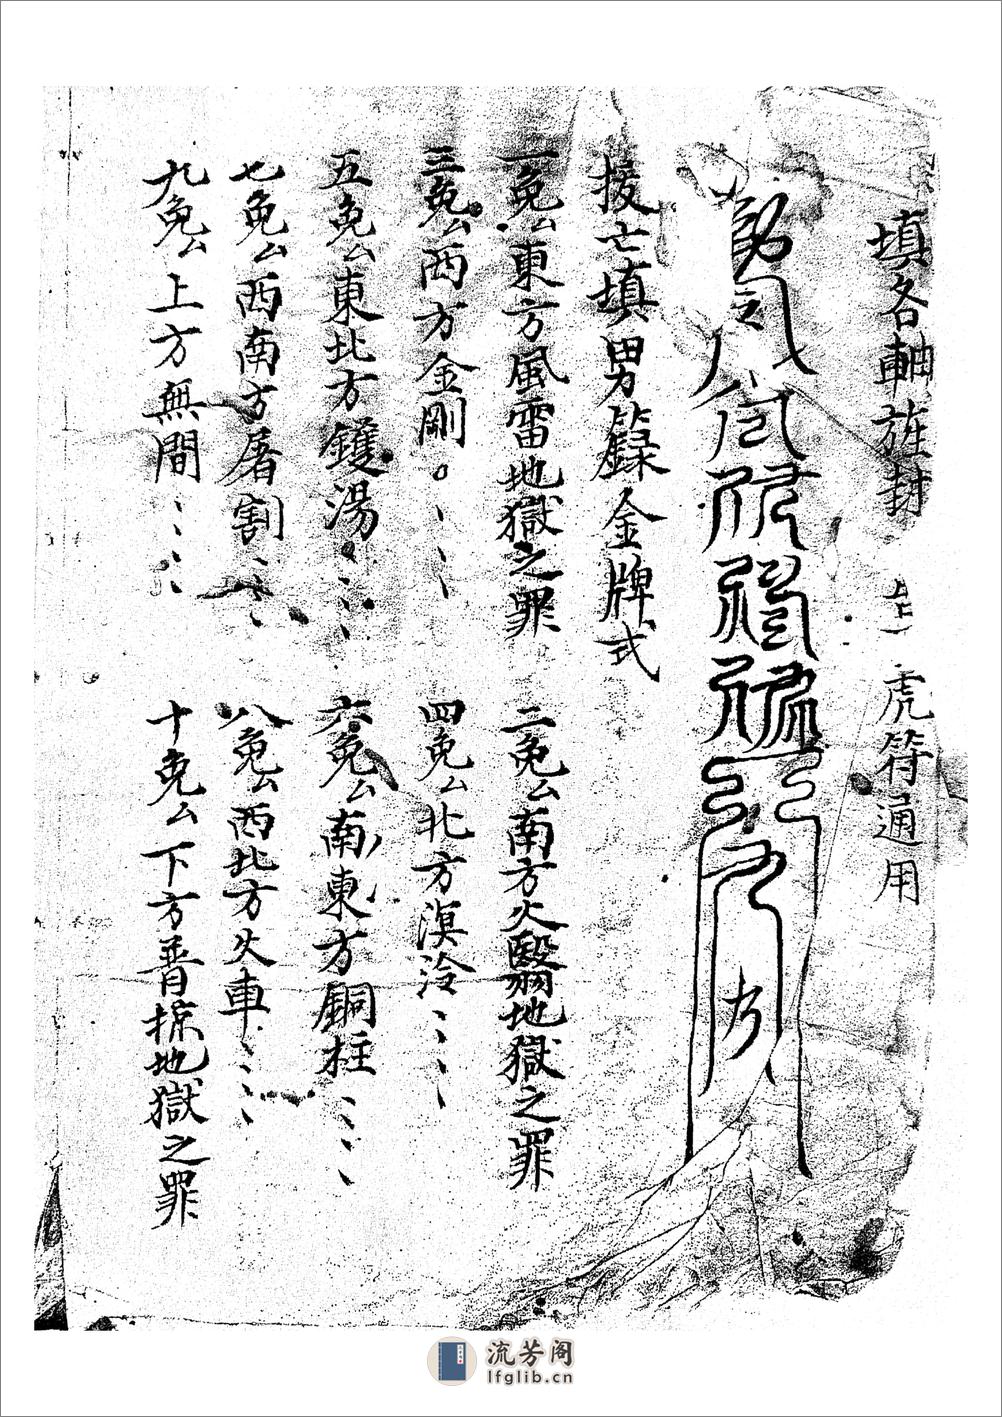 填各軸旌封 虎符通用
接亡填男籙金牌式
一免厶東方風雷地獄之罪
二免厶南方火翳地獄之罪
三免厶西方金剛。、、、
四免厶北方溟泠、、、、
五免厶東北方鑊湯、、、、
六免厶南東方銅柱、、、、
七免厶西南方屠割、、、、
八免厶西北方火車、、、、
九免厶上方無間、、、、
十免厶下方普掠地獄之罪
流芳阁
lfglib.cn